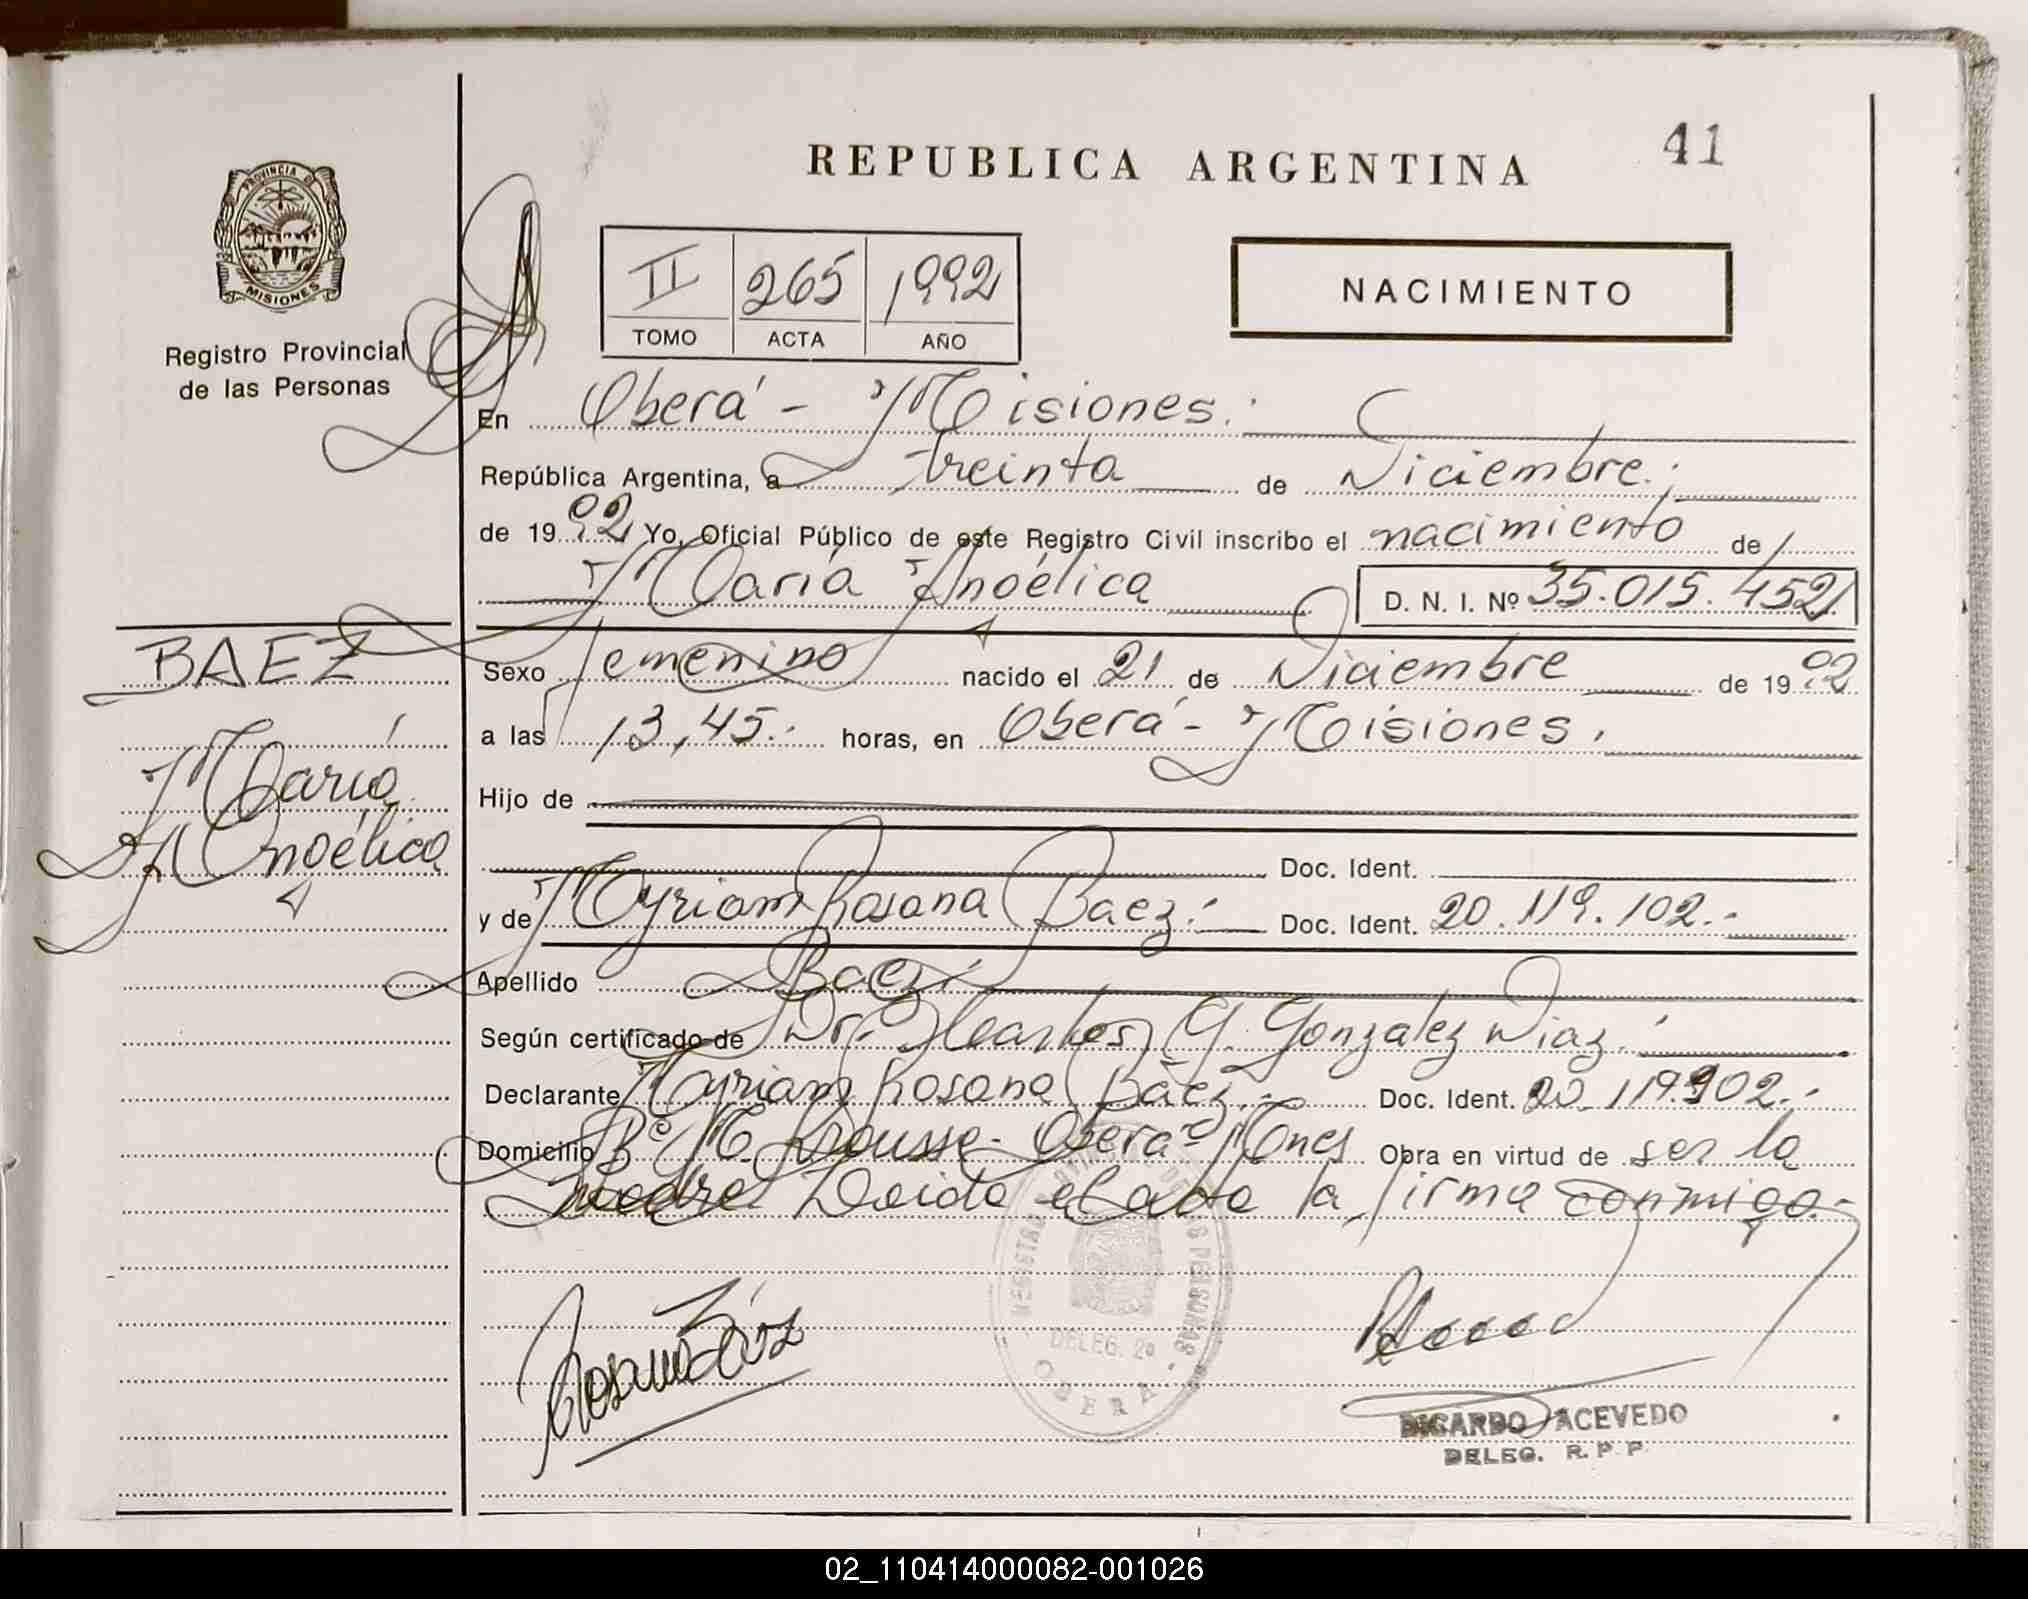 41
REPUBLICA ARGENTINA
PROVINCIA DE
MISIONES
Registro Provincial
de las Personas
II 265 1992
TOMO ACTA AÑO
NACIMIENTO
En Oberá - Misiones.
República Argentina, a treinta de Diciembre
de 1992 Yo, Oficial Público de este Registro Civil inscribo el nacimiento de
María Angélica D. N. I. Nº 35.015.452
BAEZ
María
Angélica
Sexo femenino nacido el 21 de Diciembre de 1992
a las 13,45.- horas, en Oberá - Misiones.
Hijo de
Doc. Ident.
y de Myriam Rosana Baez.- Doc. Ident. 20.119.102.-
Apellido Baez.-
Según certificado de Dr. G. Gonzalez Diaz.-
Declarante Myriam Rosana Baez.- Doc. Ident. 20.119.102.-
Domicilio Bº Krausse - Oberá Mnes Obra en virtud de ser la
madre Leida el acta la firma conmigo.-
REGISTRO PROVINCIAL DE LAS PERSONAS
DELEG. 2ª
OBERA
RICARDO ACEVEDO
DELEG. R. P. P.
02_110414000082-001026